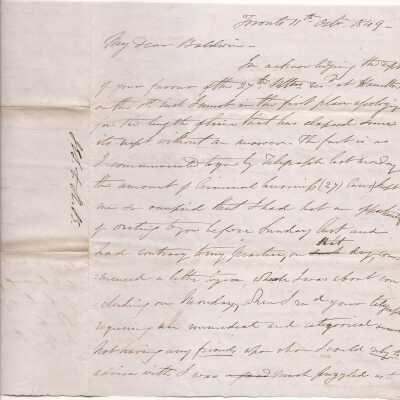 Toronto 11th Octr. 1849 -
My dear Baldwin -
In acknowledging the rept
of your favour of the 27th Ultimo recd at Hamilton
on the 1st inst I must in the first place apologize
for the length of time that has elapsed since
its rept without an answer. The fact is as
I communicated to you by Telegraph last monday
the amount of Criminal business (27) Cases kept
me so occupied that I had not an opportunity
of writing to you before Sunday last and
had contrary to my practice, on that day, com-
menced a letter to you which I was about con-
cluding on Monday, when I recd your telegraph
requiring an immediate and categorical answer
not having any friends upon whom I could rely to
advise with. I was much puzzled